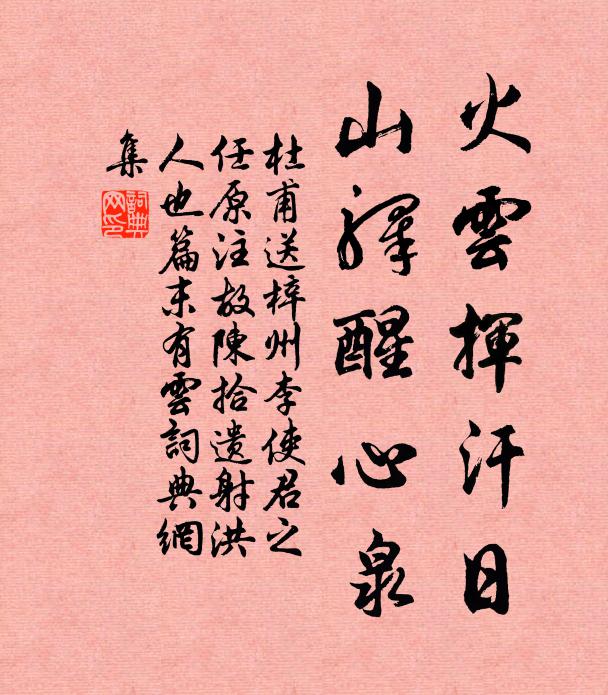 火雲揮汗日
山驛醒心泉
杜甫送梓州李使君之
任原注故陳拾遺射洪
人也篇末有雲詞典網
集
詞典網印